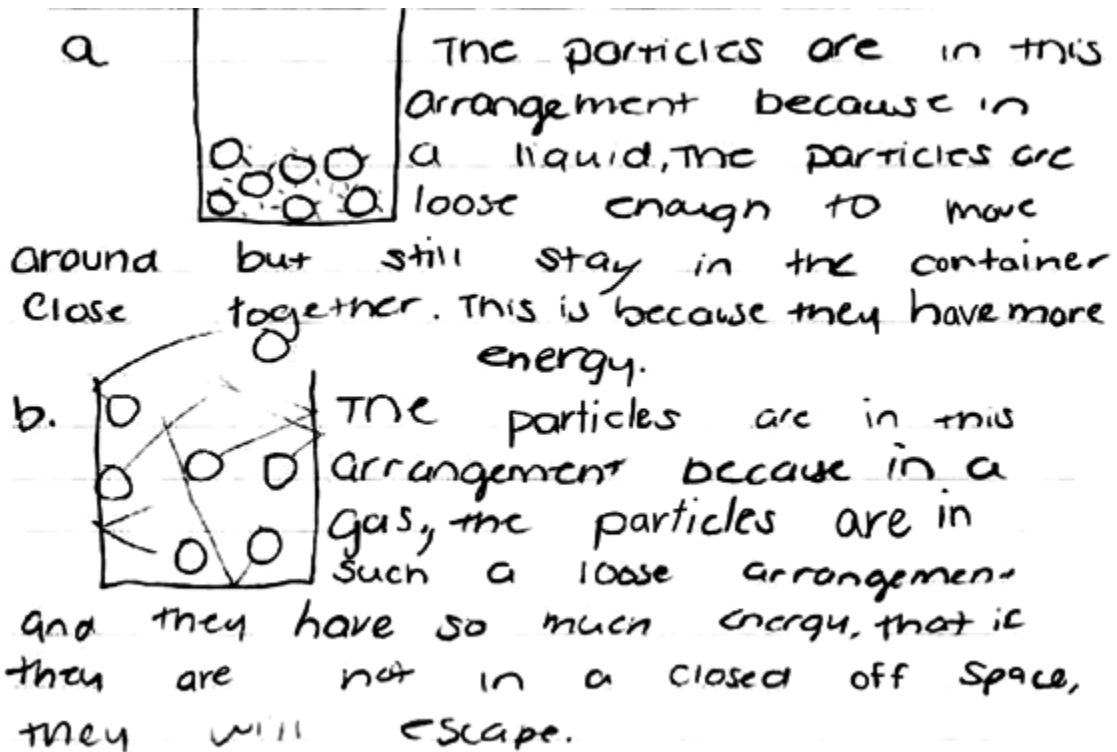 a The particles are in this
arrangement because in
a liquid, the particles are
loose enough to move
around but still stay in the container
close together. This is because they have more
energy.
b. The particles are in this
arrangement because in a
gas, the particles are in
such a loose arrangement
and they have so much energy, that if
they are not in a closed off space,
they will escape.